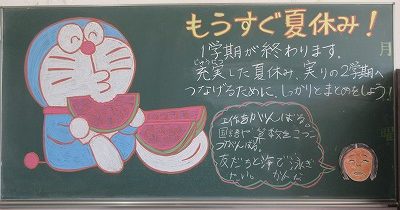 もうすぐ夏休み！
1学期が終わります。
じゅうじつ
充実した夏休み、実りの2学期へ
つなげるために、しっかりとまとめをしよう！
工作をがんばる。
算数をこつこ
つがんばる。
友だちと海で泳ぎ
たい。
月
曜